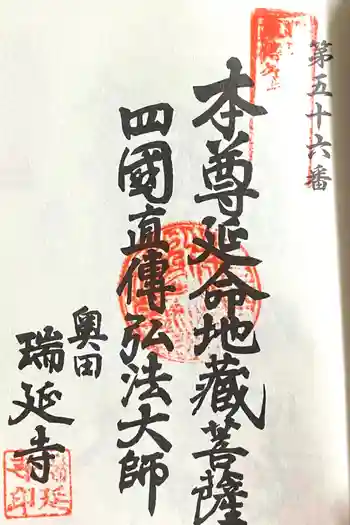 第五十六番
本尊延命地蔵菩薩
四國直傳弘法大師
奥田
瑞延寺